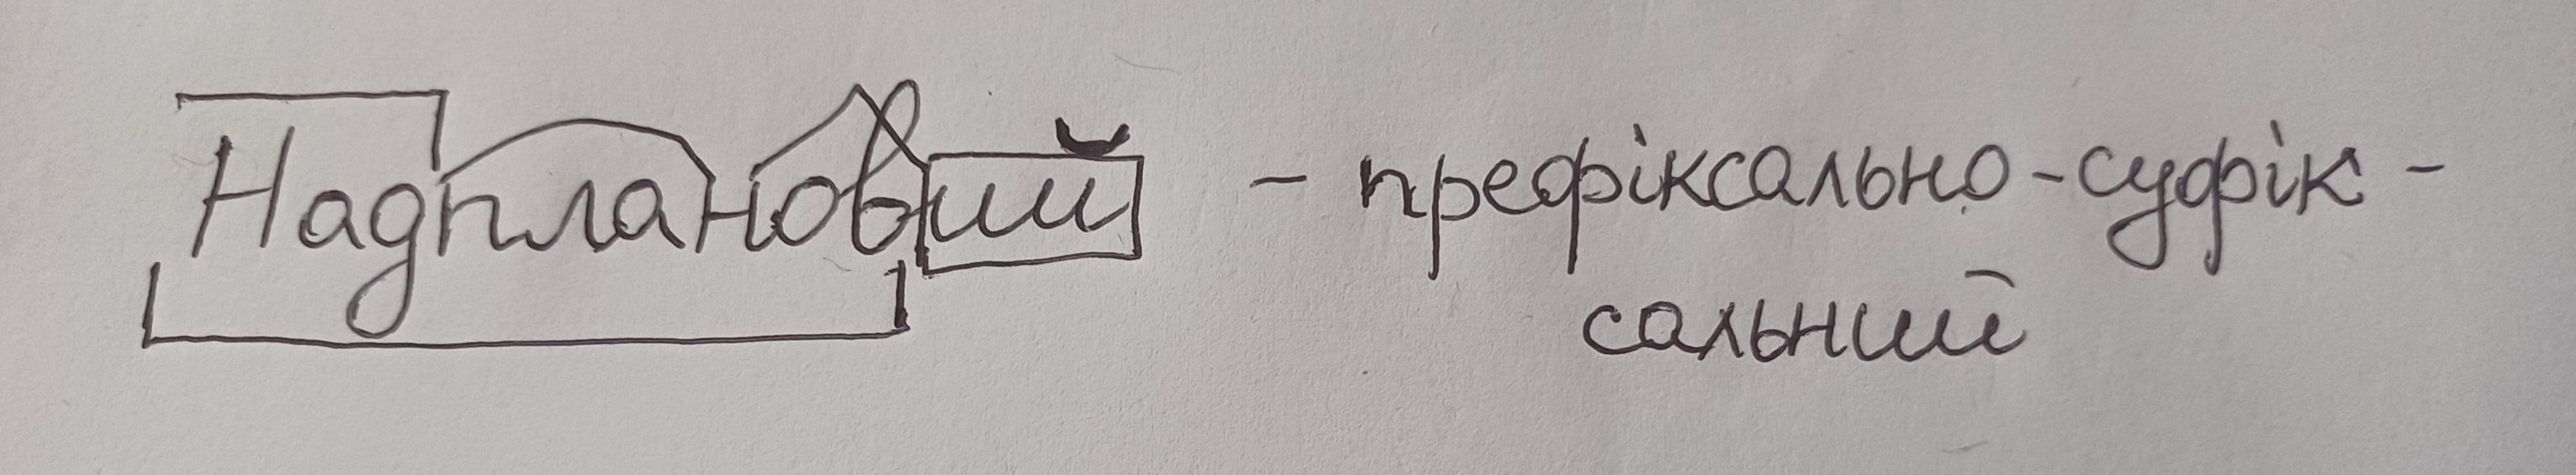 Надплановий - префіксально-суфік-
сальний